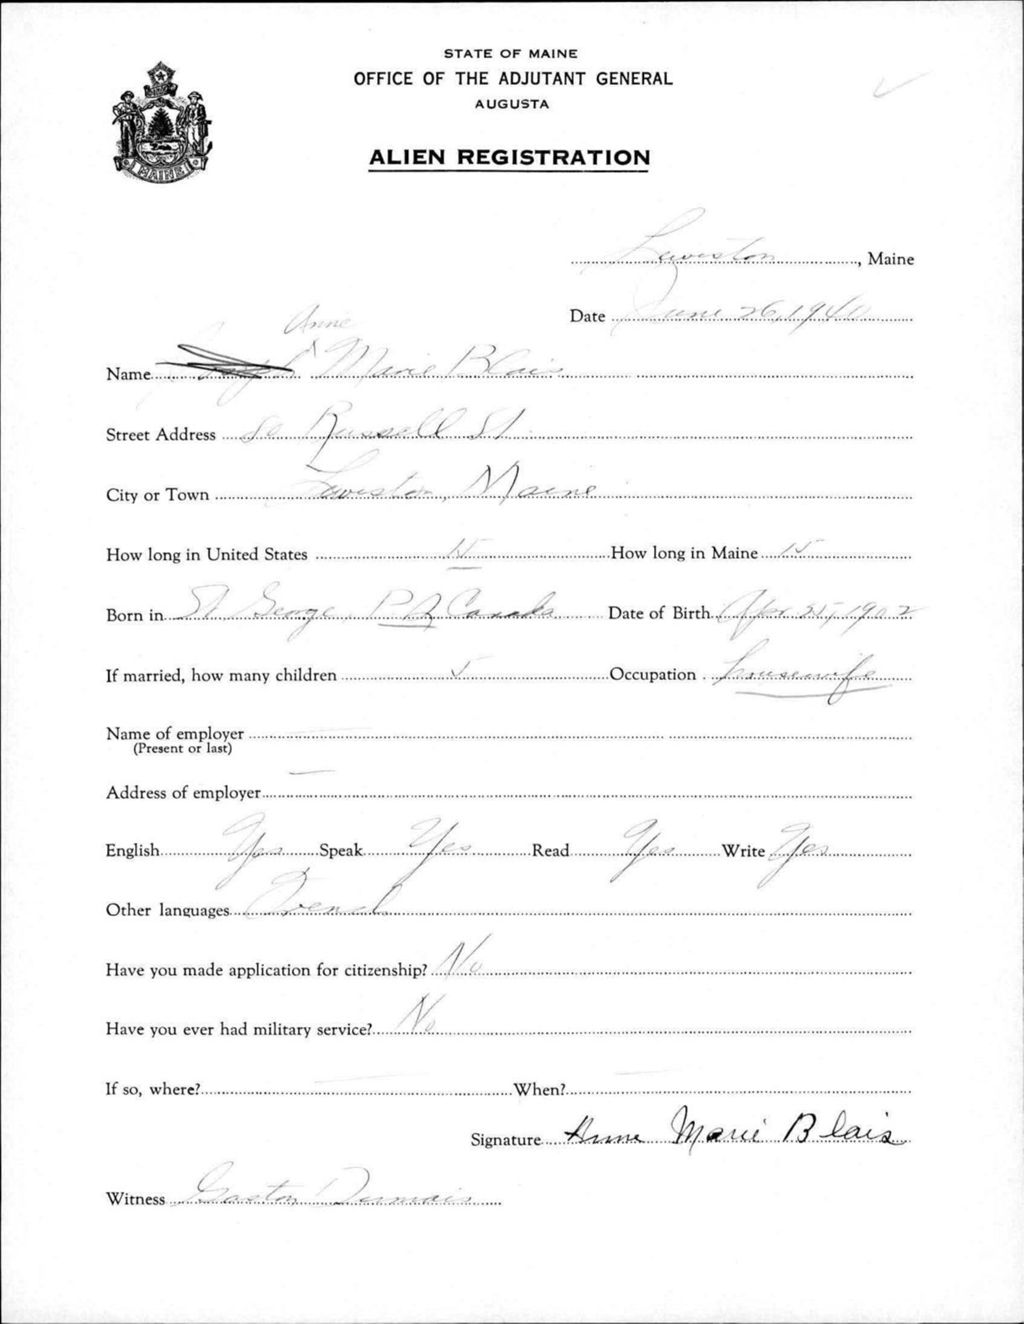 STATE OF MAINE
OFFICE OF THE ADJUTANT GENERAL
AUGUSTA
ALIEN REGISTRATION
MAINE
Lewiston, Maine
Date June 26, 1940
Anne
Name Marie Blais
Street Address Russell St
City or Town Lewiston, Maine
How long in United States 15 How long in Maine 15
Born in St George, P Q Canada Date of Birth Apr 25, 1902
If married, how many children 5 Occupation housewife
Name of employer
(Present or last)
Address of employer
English Yes Speak Yes Read Yes Write Yes
Other languages French
Have you made application for citizenship? No
Have you ever had military service? No
If so, where? When?
Signature Anne Marie Blais
Witness Gaston Dumais